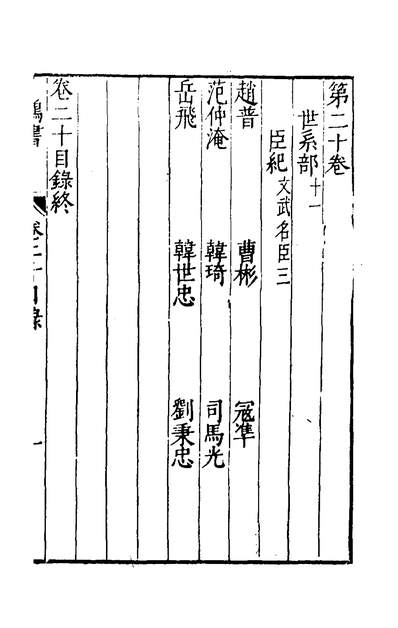 第二十卷
世系部十一
臣紀文武名臣三
趙普 曹彬 寇準
范仲淹 韓琦 司馬光
岳飛 韓世忠 劉秉忠
卷二十目錄終
書 卷二十目錄 一